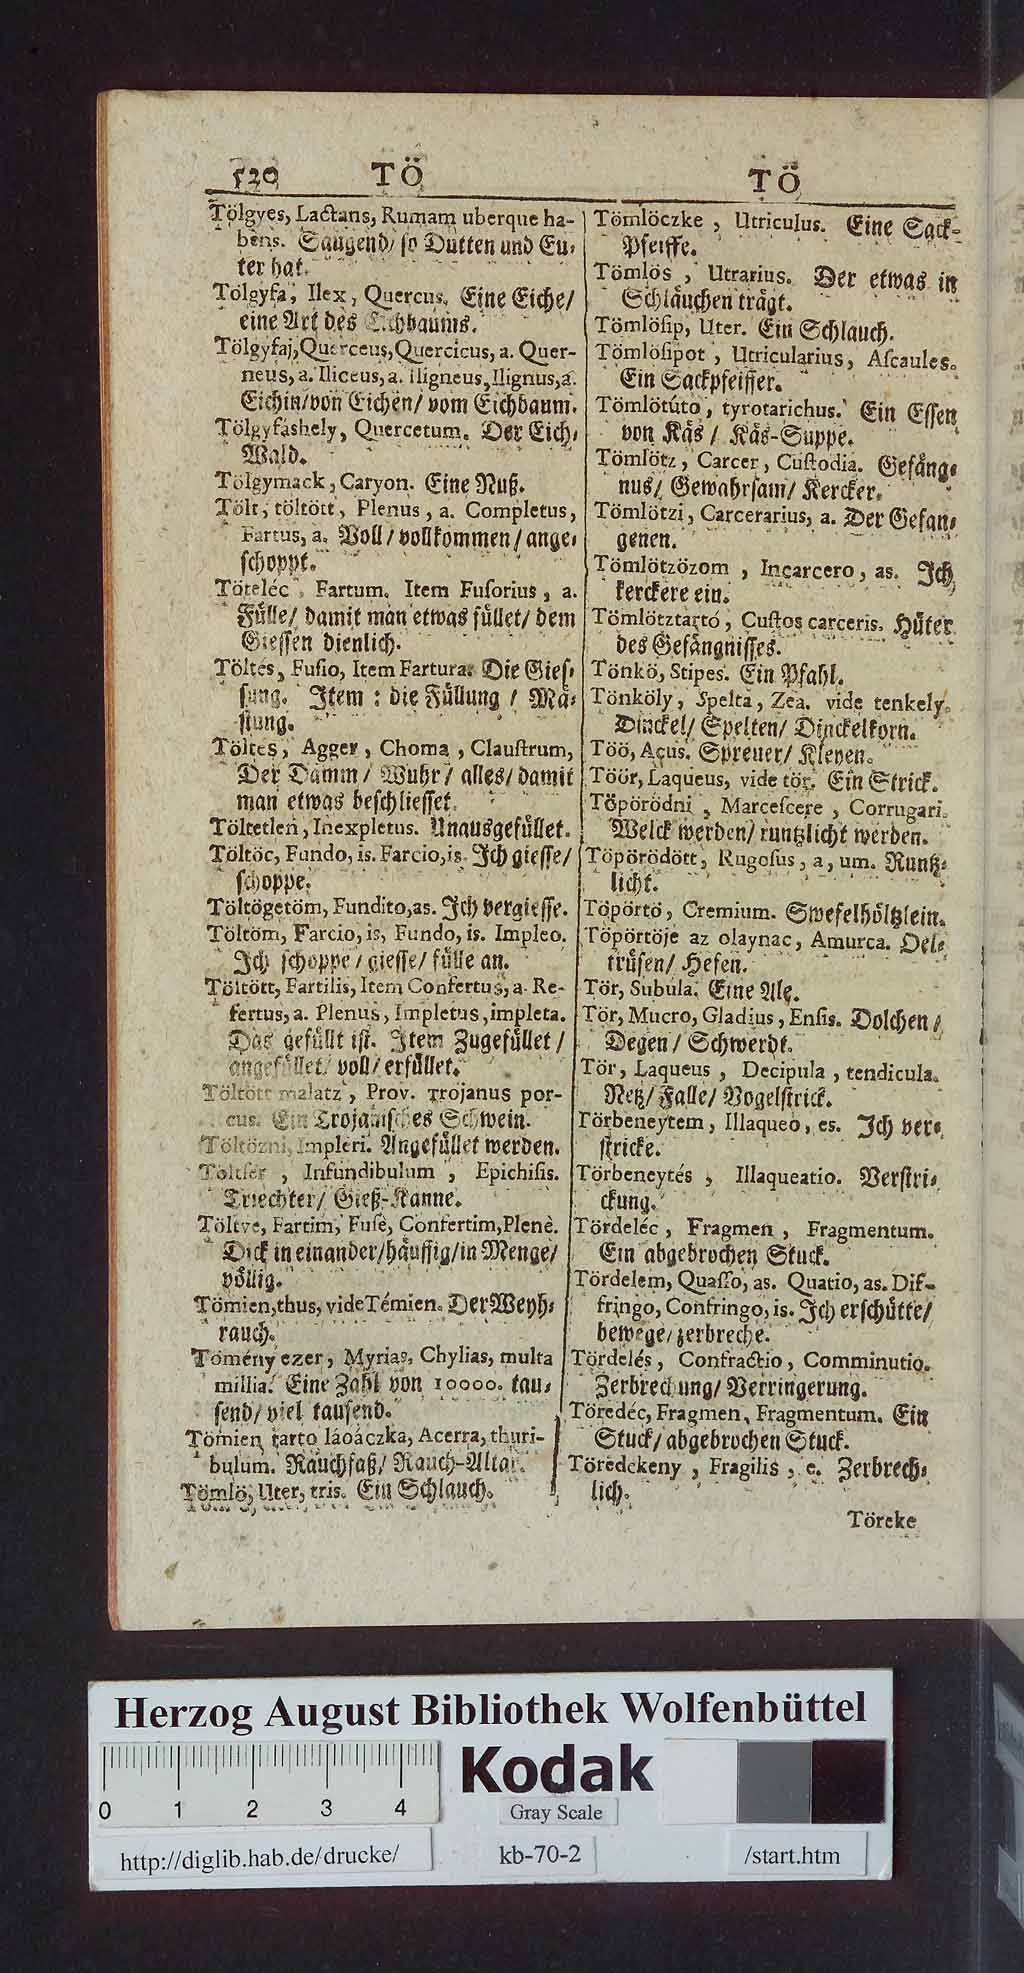 520 TÖ TÖ
Tölgyes, Lactans, Rumam uberque ha-
bens. Saugend/ so Dutten und Eu-
ter hat.
Tölgyfa, Ilex, Quercus. Eine Eiche/
eine Art des Eichbaums.
Tölgyfaj, Querceus, Quercicus, a. Quer-
neus, a. Iliceus, a. Iligneus, Ilignus, a.
Eichin/ von Eichen/ vom Eichbaum.
Tölgyfáshely, Quercetum. Der Eich-
Wald.
Tölgymack, Caryon. Eine Nuß.
Tölt, töltött, Plenus, a. Completus,
Fartus, a. Voll/ vollkommen/ ange-
schoppt.
Töteléc, Fartum. Item Fusorius, a.
Fülle/ damit man etwas füllet/ dem
Giessen dienlich.
Töltés, Fusio, Item Fartura. Die Gies-
sung. Item: die Füllung/ Mä-
stung.
Töltés, Agger, Choma, Claustrum,
Der Damm/ Wuhr/ alles/ damit
man etwas beschliesset.
Töltetlen, Inexpletus. Unausgefüllet.
Töltöc, Fundo, is. Farcio, is. Ich giesse/
schoppe.
Töltögetöm, Fundito, as. Ich vergiesse.
Töltöm, Farcio, is, Fundo, is. Impleo.
Ich schoppe/ giesse/ fülle an.
Töltött, Fartilis, Item Confertus, a. Re-
fertus, a. Plenus, Impletus, impleta.
Das gefüllt ist. Item Zugefüllet/
angefüllet/ voll/ erfüllet.
Töltött malatz, Prov. Trojanus por-
cus. Ein Trojanisches Schwein.
Töltözni, Impleri. Angefüllet werden.
Töltsér, Infundibulum, Epichisis.
Triechter/ Gieß-Kanne.
Töltve, Fartim, Fusè, Confertim, Plenè.
Dick in einander/ häuffig/ in Menge/
völlig.
Tömien, thus, vide Témien. Der Weyh-
rauch.
Tömény ezer, Myrias, Chylias, multa
millia. Eine Zahl von 10000. tau-
send/ viel tausend.
Tömien tarto láoáczka, Acerra, thuri-
bulum. Rauchfaß/ Rauch-Altar.
Tömlö, Uter, tris. Ein Schlauch.
Tömlöczke, Utriculus. Eine Sack-
Pfeiffe.
Tömlös, Utrarius. Der etwas in
Schläuchen trägt.
Tömlösip, Uter. Ein Schlauch.
Tömlösipot, Utricularius, Ascaules.
Ein Sackpfeiffer.
Tömlötúto, tyrotarichus. Ein Essen
von Käs/ Käs-Suppe.
Tömlötz, Carcer, Custodia. Gefäng-
nus/ Gewahrsam/ Kercker.
Tömlötzi, Carcerarius, a. Der Gefan-
genen.
Tömlötzözom, Incarcero, as. Ich
kerckere ein.
Tömlötztartó, Custos carceris. Hüter
des Gefängnisses.
Tönkö, Stipes. Ein Pfahl.
Tönköly, Spelta, Zea. vide tenkely.
Dinckel/ Spelten/ Dinckelkorn.
Töö, Acus. Spreuer/ Kleyen.
Töör, Laqueus, vide tör. Ein Strick.
Töpörödni, Marcescere, Corrugari.
Welck werden/ runtzlicht werden.
Töpörödött, Rugosus, a, um. Runtz-
licht.
Töpörtö, Cremium. Swefelhöltzlein.
Töpörtöje az olaynac, Amurca. Oel-
trüsen/ Hefen.
Tör, Subula. Eine Ale.
Tör, Mucro, Gladius, Ensis. Dolchen/
Degen/ Schwerdt.
Tör, Laqueus, Decipula, tendicula.
Netz/ Falle/ Vogelstrick.
Törbeneytem, Illaqueo, es. Ich ver-
stricke.
Törbeneytés, Illaqueatio. Verstri-
ckung.
Tördeléc, Fragmen, Fragmentum.
Ein abgebrochen Stuck.
Tördelem, Quasso, as. Quatio, as. Dif-
fringo, Confringo, is. Ich erschütte/
bewege/ zerbreche.
Tördelés, Confractio, Comminutio.
Zerbrechung/ Verringerung.
Töredéc, Fragmen, Fragmentum. Ein
Stuck/ abgebrochen Stuck.
Töredekeny, Fragilis, e. Zerbrech-
lich.
Töreke
Herzog August Bibliothek Wolfenbüttel
Kodak
0 1 2 3 4
Gray Scale
http://diglib.hab.de/drucke/ kb-70-2 /start.htm